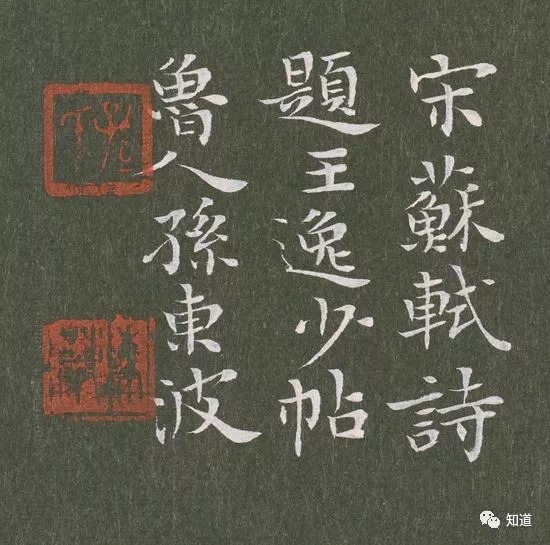 宋蘇軾詩
題王逸少帖
魯人孫東波
知道